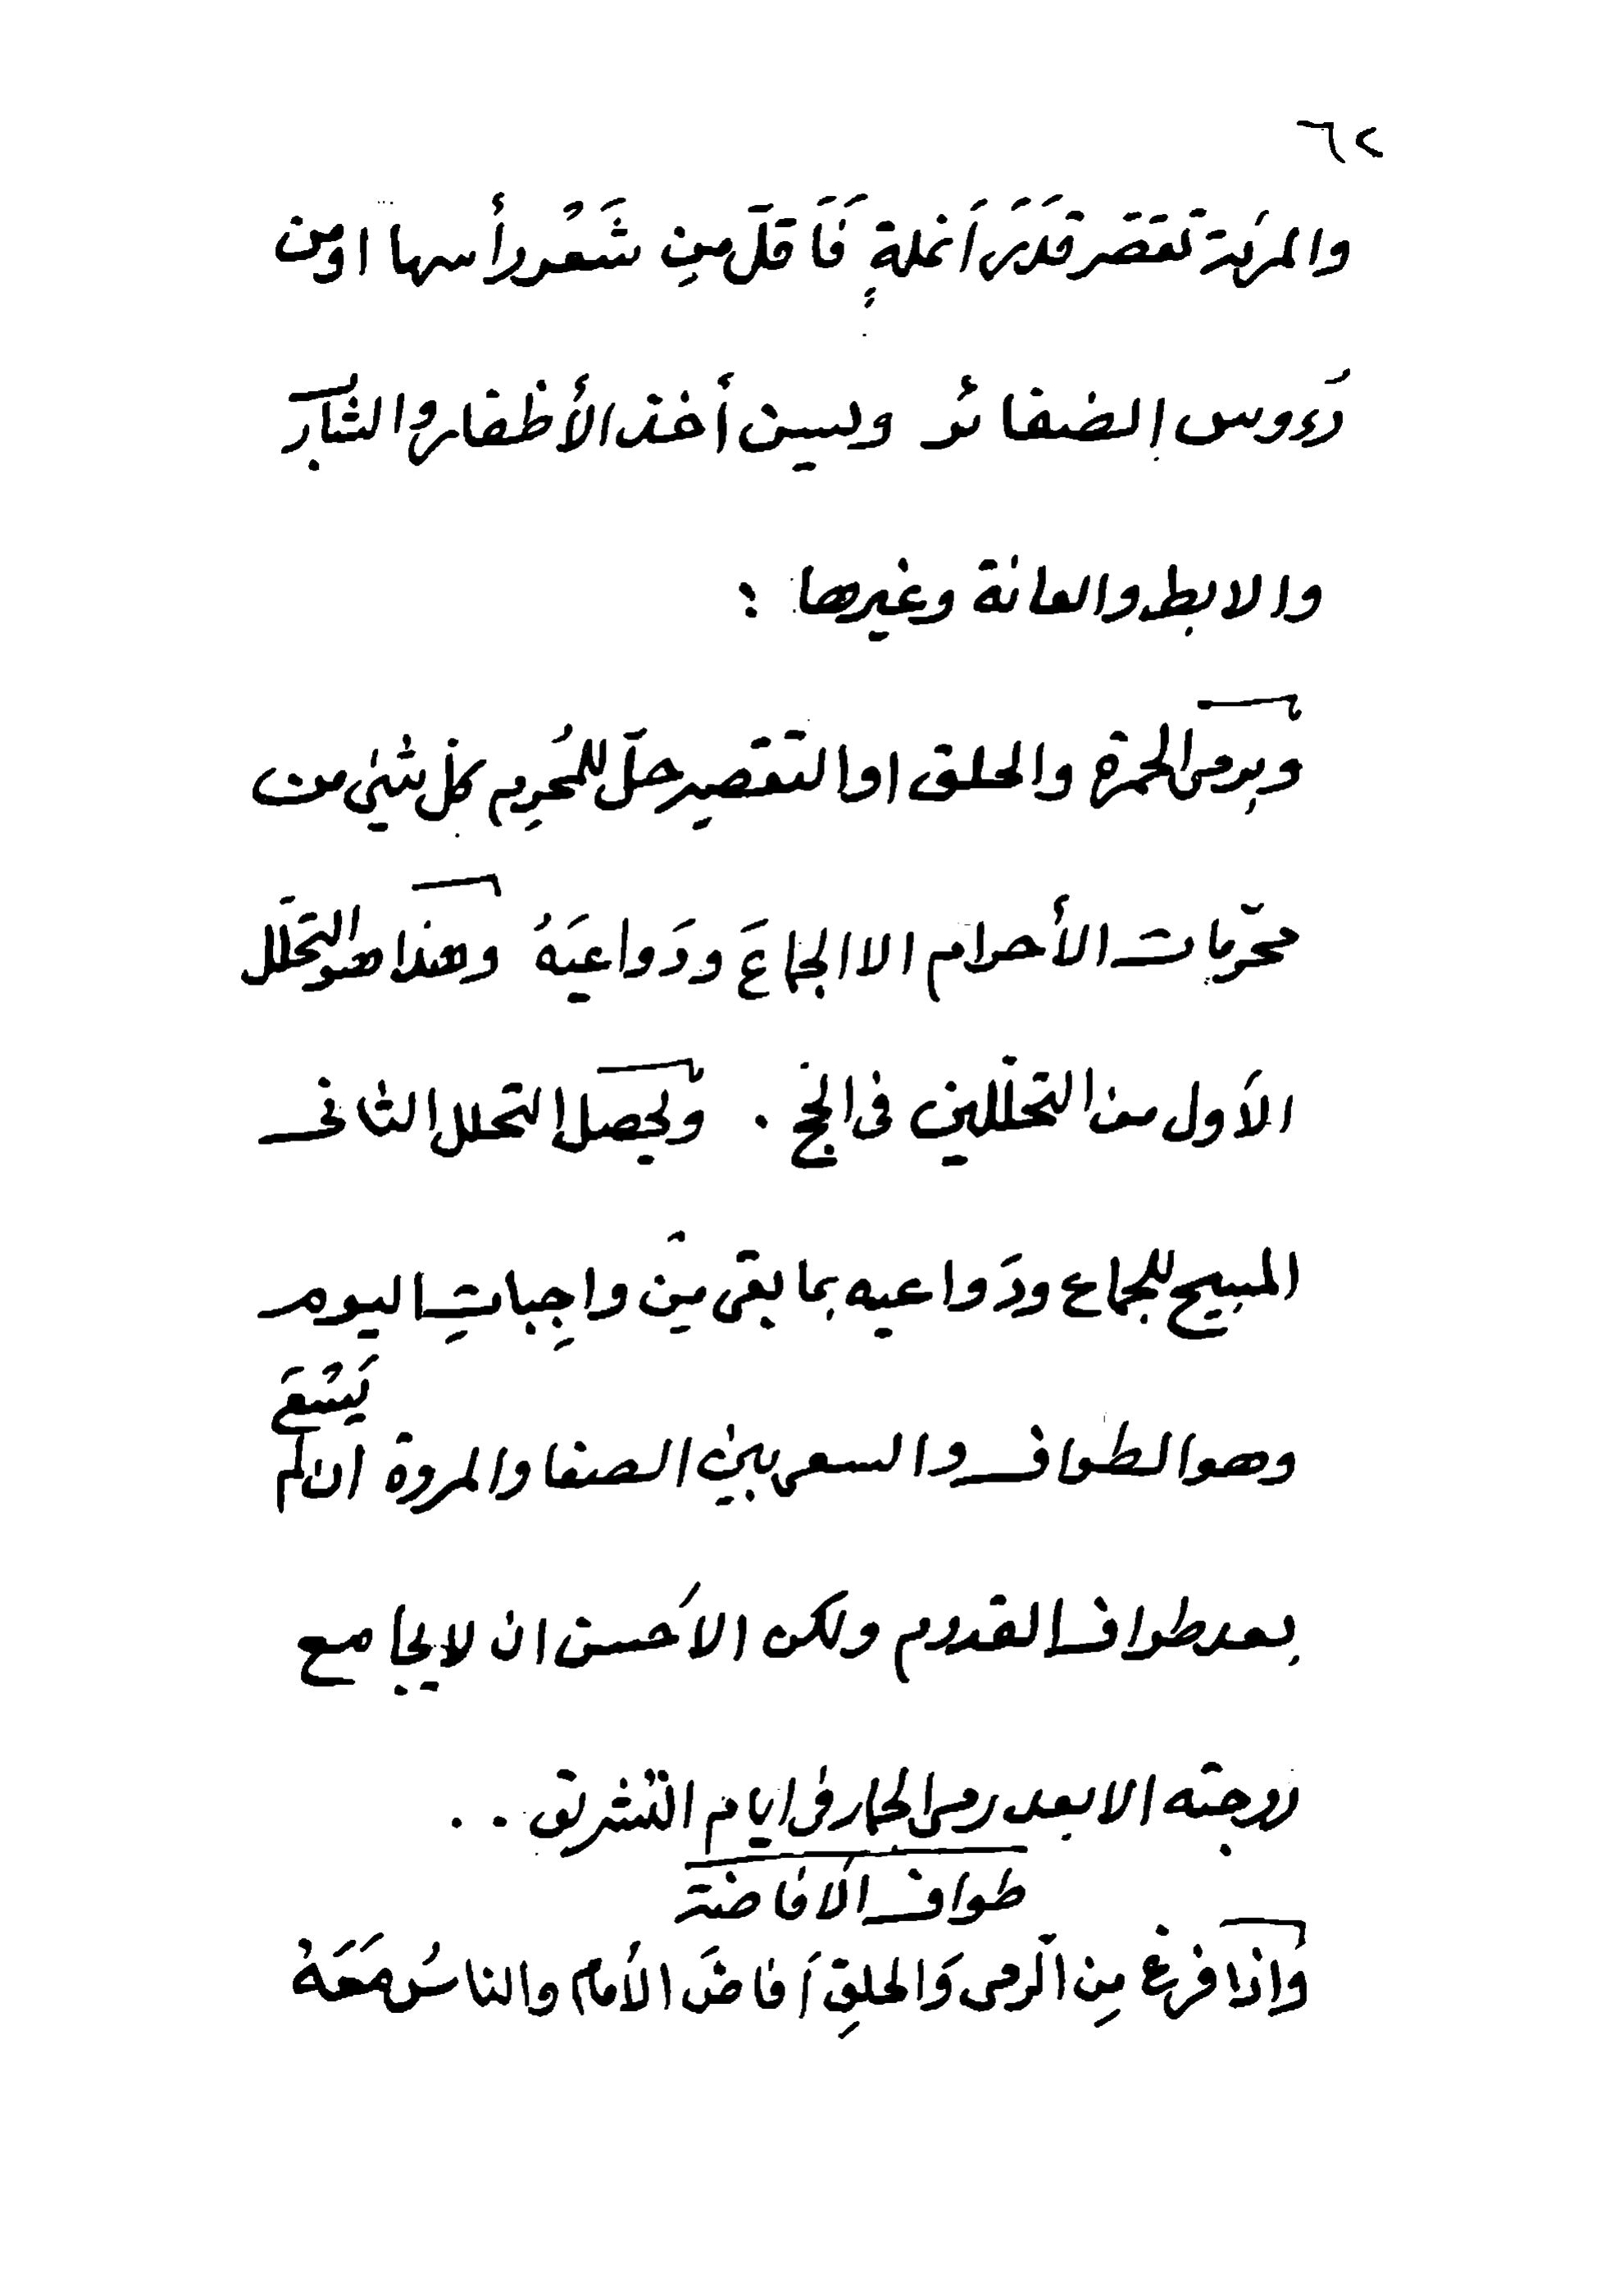 ٦٢
والمرئة تقصر قدَرَ أنملةٍ فَأقلّ مِن شَعُر رأسها اومن
رءوس الضفائر وليسن أخذ الأظفار والشارب
والابط والعانة وغيرها :
وبرمى الجمرة والحلق اوالتقصير حلّ للمُحرِم كل شيئ من
محرّمات الأحرام الا الجماعَ ودَواعيَهُ وهذا هو التحلّل
الأول من التحلّلين فى الحج . ويحصل التحلل الثانى
المبيح للجماع ودَواعيه بما بقى من واجِباتِ اليوم
وهو الطواف والسعى بين الصفا والمروة ان لم يَسْعَ
بعد طواف القدوم ولكن الأحسن ان لا يجامع
زوجته الا بعد رمى الجمار فى ايام التشريق . .
طواف الأفاضة
وَاذا فرغ مِن الرّمى وَالحلقِ أفاضَ الأمام والناسُ مَعَهُ